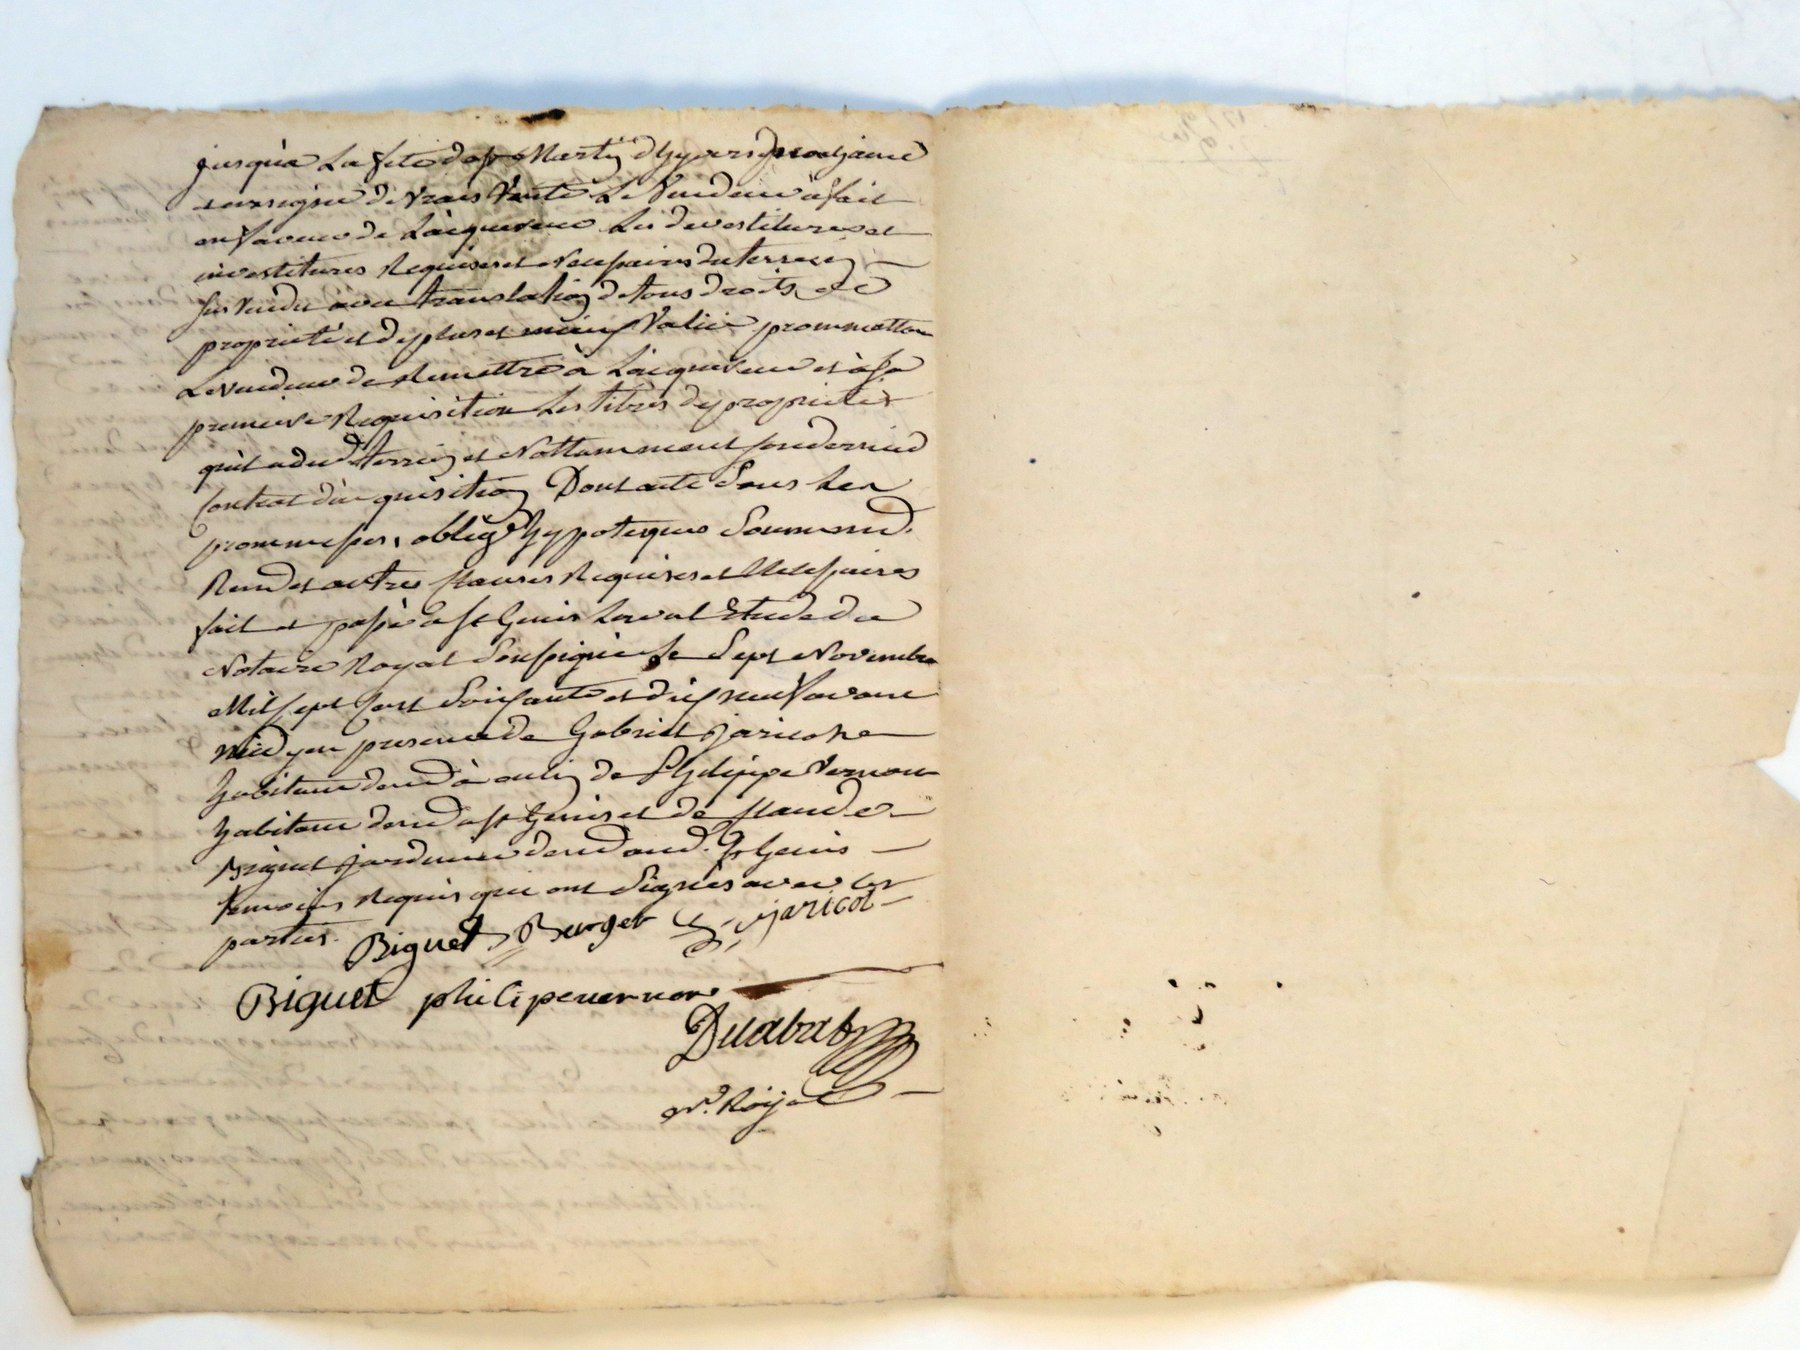 jusqu'a La fete de st Martin d'hyvers prochaine
de vraie Vente Le Vendeur a fait
en faveur de L'acquereur Les devestitures et
investitures Requises et Necessaires du terrein
sus vendu avec translation de tous droits de
proprieté et de plus et mieux Value promettant
Le vendeur de Remettre à L'acquereur et à sa
premiere Requisition Les titres de proprieté
qu'il a dud. terrein et Nottamment son dernier
Contrat d'acquisition Dont acte Sous Les
promesses, oblig. hypoteque Soumis.
Ren. et autres Clauses Requises et Necessaires
fait et passé a St Genis Laval Etude du
Notaire Royal Soussigné Le Sept Novembre
Mil sept Cent Soixante et dix neuf avant
midy en presence de Gabriel jaricot
habitant dem. à oulin de Philippe Vernon
habitant dem. a St Genis et de Claude
Biguet jardinier dem. aud. St Genis
temoins Requis qui ont Signés avec les
parties. Biguet Burger G. jaricot
Biguet philipe vernon
Dulabat
n.re Royal